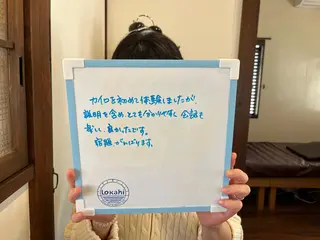 カイロを初めて体験しましたが、
説明を含め、とても分かりやすく 会話も
楽しく 良かったです。
宿題がんばります。
Lokahi